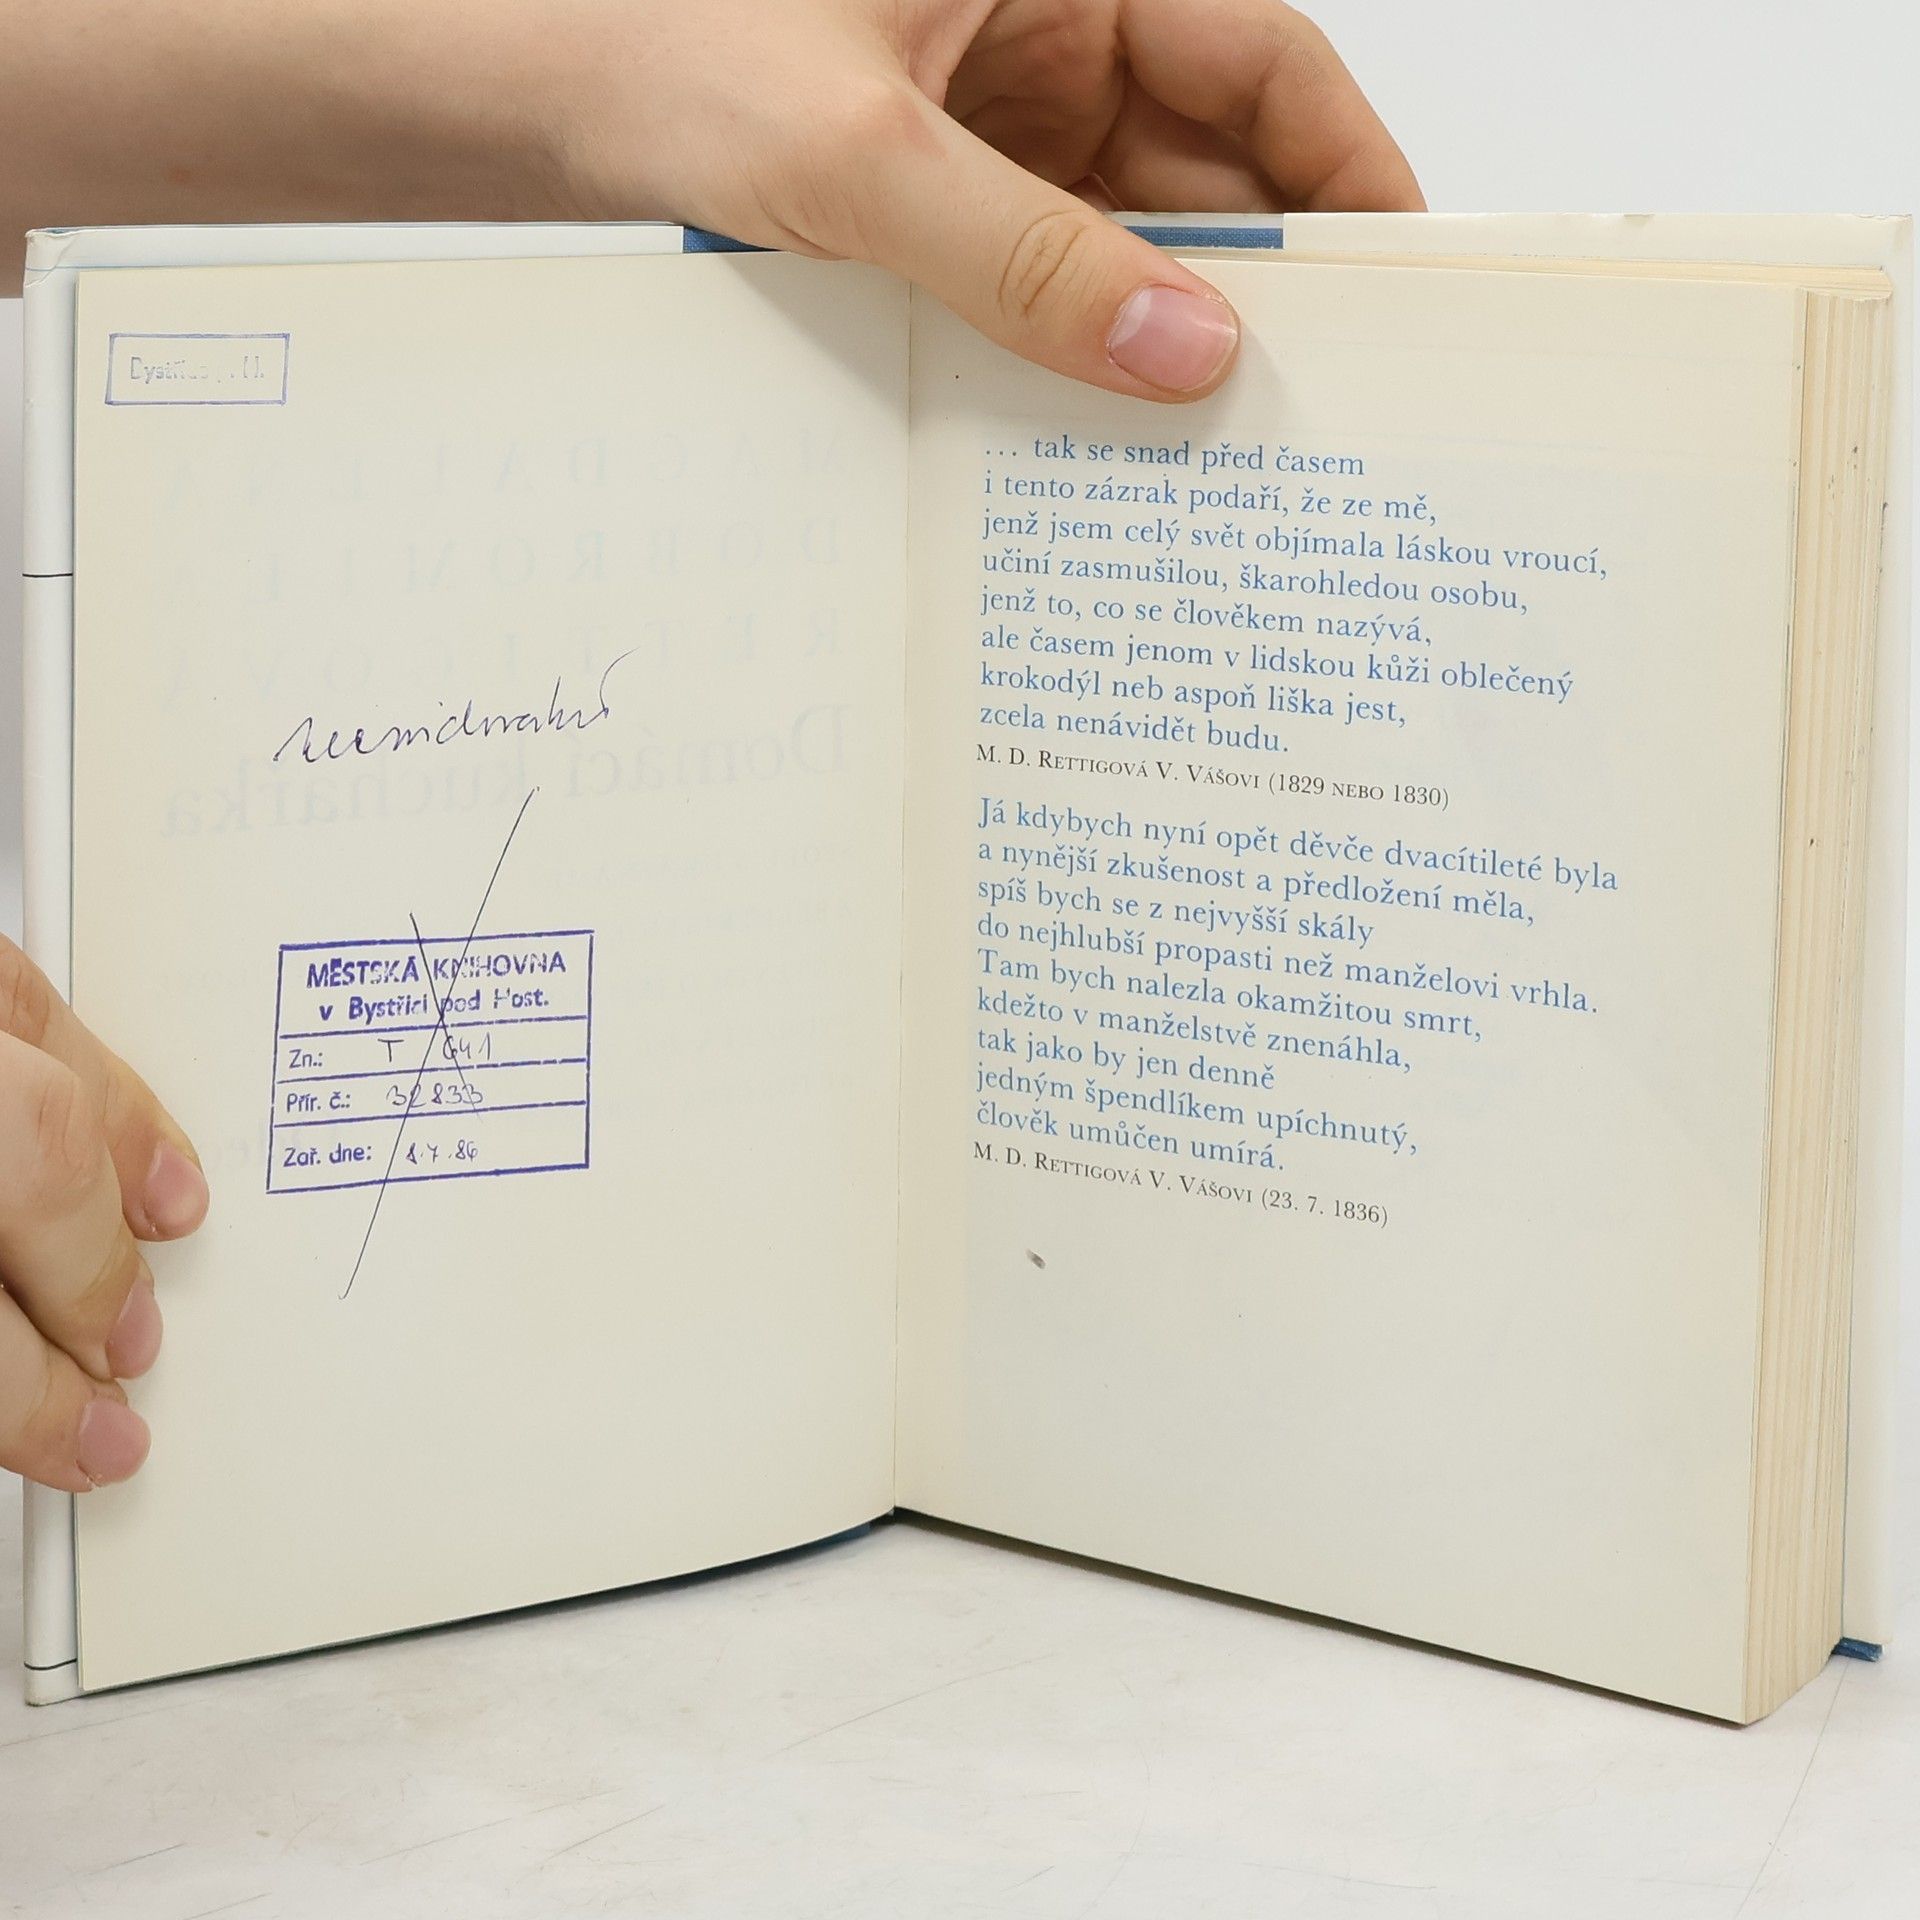 MĚSTSKÁ KNIHOVNA
v Bystřici pod Host.
Zn.: T 641
Přír. č.: 32833
Zař. dne: 8.7.86
... tak se snad před časem
i tento zázrak podaří, že ze mě,
jenž jsem celý svět objímala láskou vroucí,
učiní zasmušilou, škarohledou osobu,
jenž to, co se člověkem nazývá,
ale časem jenom v lidskou kůži oblečený
krokodýl neb aspoň liška jest,
zcela nenávidět budu.
M. D. RETTIGOVÁ V. VÁŠOVI (1829 NEBO 1830)
Já kdybych nyní opět děvče dvacítileté byla
a nynější zkušenost a předložení měla,
spíš bych se z nejvyšší skály
do nejhlubší propasti než manželovi vrhla.
Tam bych nalezla okamžitou smrt,
kdežto v manželstvě znenáhla,
tak jako by jen denně
jedným špendlíkem upíchnutý,
člověk umůčen umírá.
M. D. RETTIGOVÁ V. VÁŠOVI (23. 7. 1836)